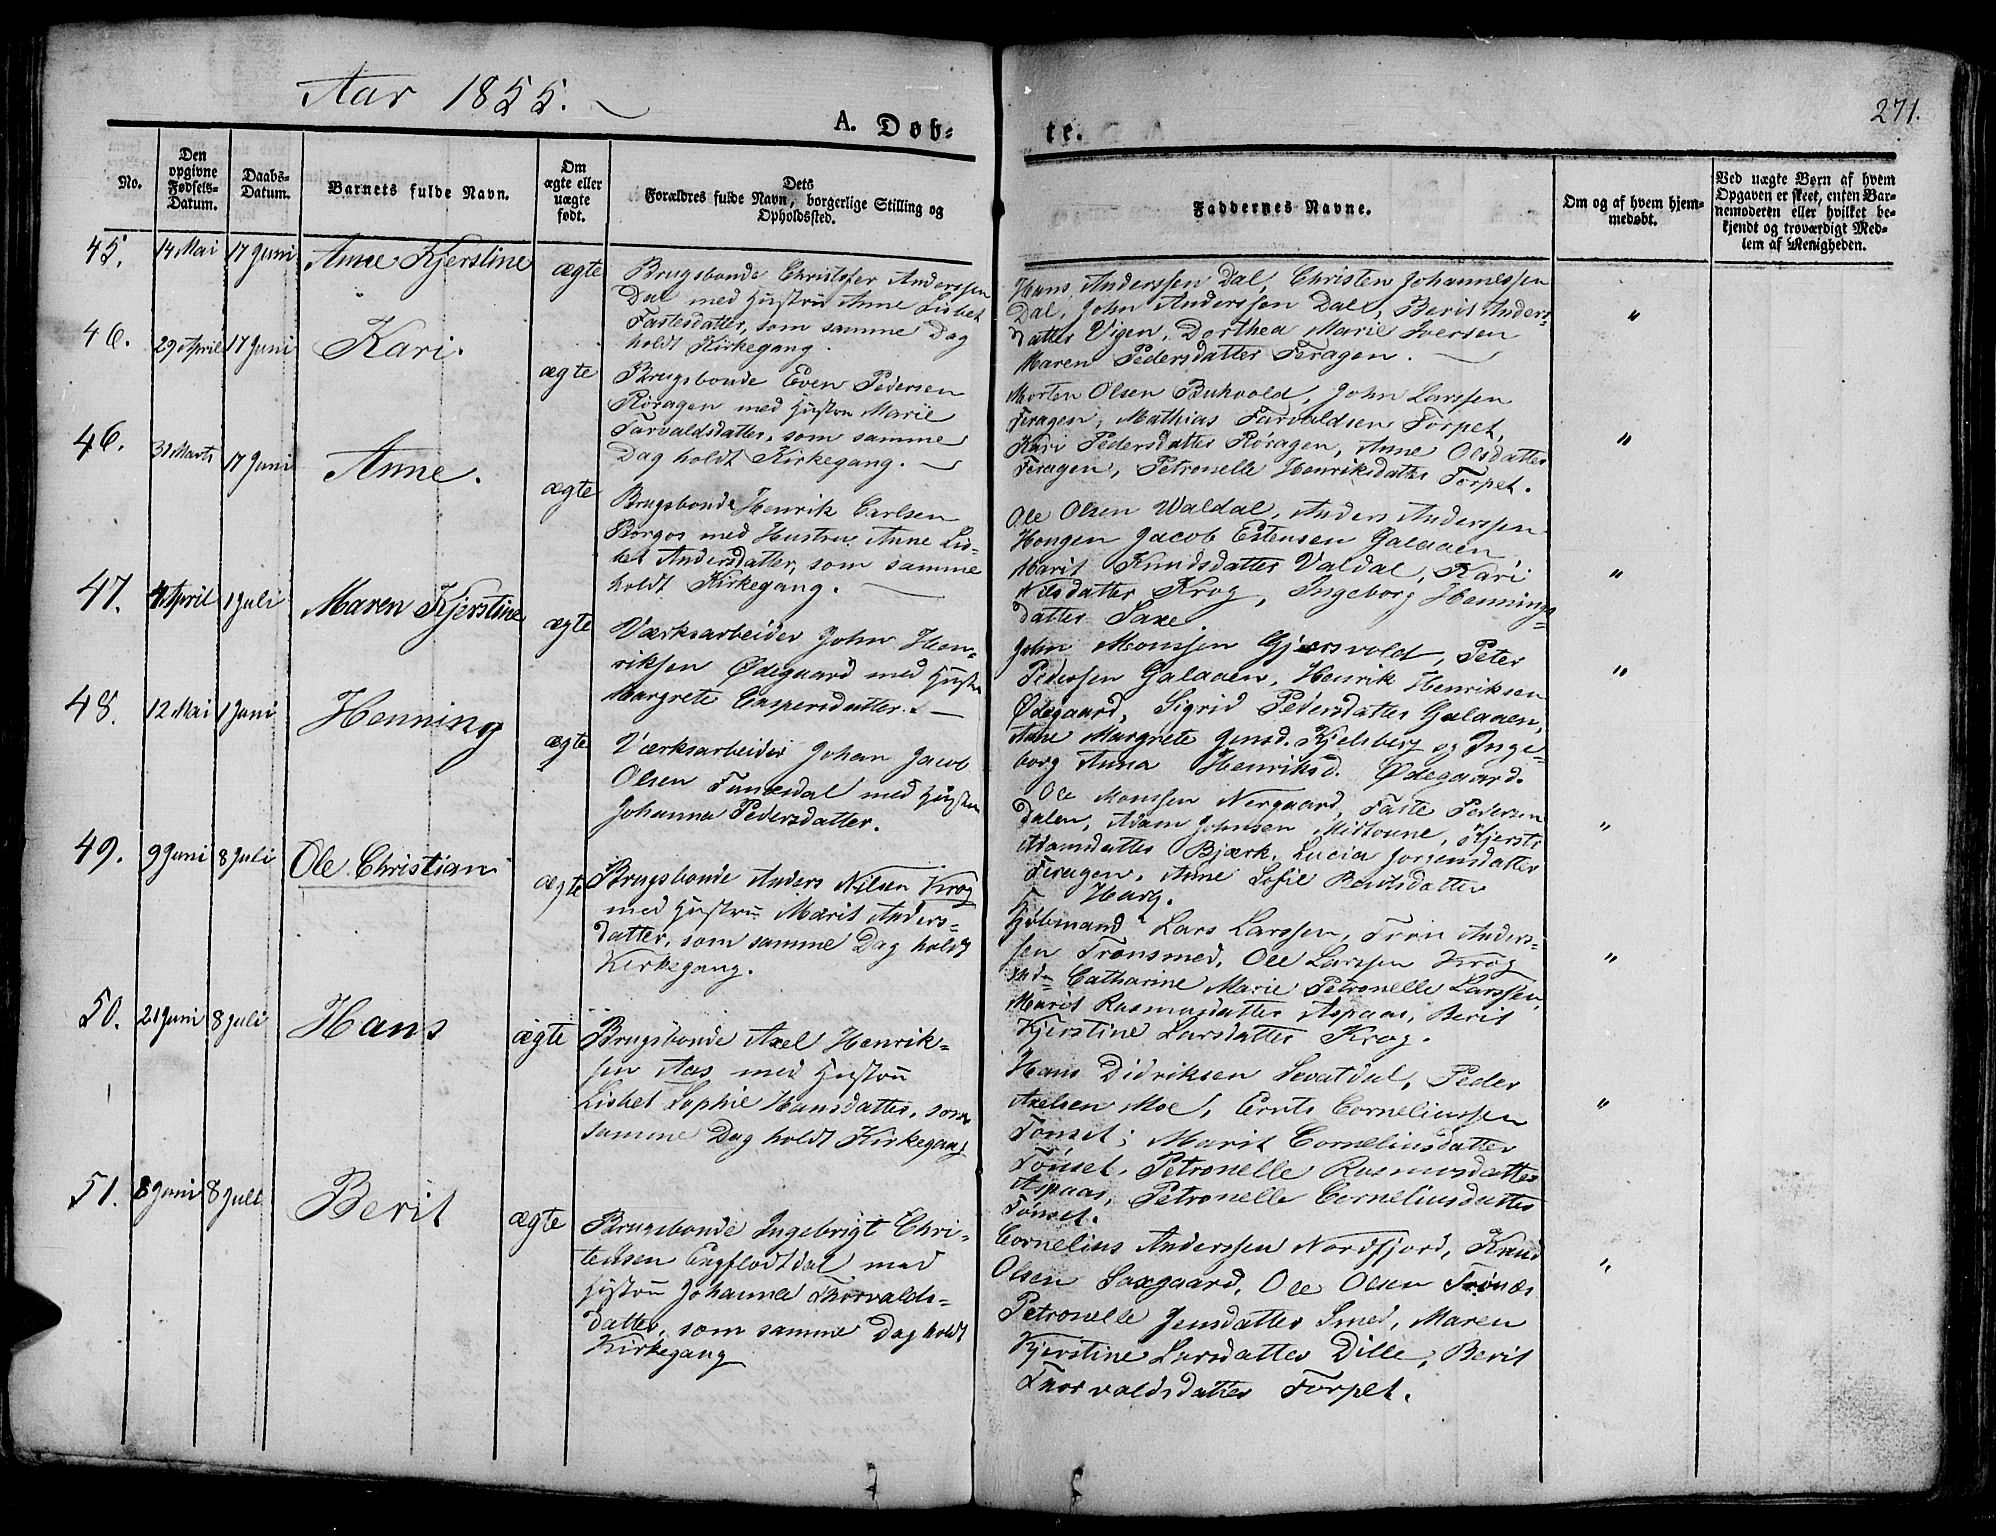 Aar 1855.
A. Døb-
te.
271.
No.
Den opgivne Fødsels-Datum.
Daabs-Datum.
Barnets fulde Navn.
Om ægte eller uægte født.
Dets Forældres fulde Navn, borgerlige Stilling og Opholdssted.
Faddernes Navne.
Om og af hvem hjemmedøbt.
Ved uægte Børn af hvem Opgaven er skeet, enten Barnemoderen eller hvilket bekjendt og troværdigt Medlem af Menigheden.
45. 14 Mai 17 Juni Anne Kjerstine ægte
Brugsbonde Christofer Anderssen
Dal med Hustru Anne Lisbet
Fastesdatter, som samme Dag
holdt Kirkegang.
Hans Anderssen Dal, Christen Johannessen
Dal, John Anderssen Dal, Berit Anders-
datter Vigen, Dorthea Marie Iversen
Maren Pedersdatter Feragen.
"
46. 29 April 17 Juni Kari. ægte
Brugsbonde Even Pedersen
Røragen med Hustru Marie
Tarvaldsdatter, som samme
Dag holdt Kirkegang.
Morten Olsen Bukvold, John Larssen
Feragen, Mathias Tarvaldsen Torpet,
Kari Pedersdatter Røragen, Anne Olsdatter
Feragen, Petronelle Henriksdatter Torpet.
"
46. 31 Marts 17 Juni Anne. ægte
Brugsbonde Henrik Carlsen
Borgos med Hustru Anne Lis-
bet Andersdatter, som samme
holdt Kirkegang.
Ole Olsen Waldal, Anders Anderssen
Hongen Jacob Estensen Galaaen
Marit Knudsdatter Valdal, Kari
Nilsdatter Krog, Ingeborg Hennings-
datter Saxe
"
47. 4 April 1 Juli Maren Kjerstine ægte
Værksarbeider John Hen-
riksen Ødegaard med Hustru
Margrete Caspersdatter.
John Monssen Gjersvold, Peter
Pederssen Galaaen, Henrik Henriksen
Ødegaard, Sigrid Pedersdatter Galaaen,
Anne Margrete Jensd. Kjelsberg og Inge-
borg Anna Henriksd. Ødegaard.
"
48. 12 Mai 1 Juni Henning ægte
Værksarbeider Johan Jacob
Olsen Funæsdal med Hustru
Johanna Pedersdatter.
Ole Monssen Nergaard, Faste Pedersen
Dalen, Adam Johnsen Midtoune, Kjersti
Adamsdatter Bjærk, Lucia Jørgensdatter
Feragen, Anne Sofie Bentsdatter
Harg.
"
49. 9 Juni 8 Juli Ole Christian ægte
Brugsbonde Anders Nilsen Krog
med Hustru Marit Anders-
datter, som samme Dag holdt
Kirkegang.
Kjøbmand Lars Larssen, Tron Anders-
sen Tronsmed, Ole Larssen Krog
Catharine Marie Petronelle Larssen,
Marit Rasmusdatter Aspaas, Berit
Kjerstine Larsdatter Krog.
"
50. 21 Juni 8 Juli Hans ægte
Brugsbonde Axel Henrik-
sen Aas med Hustru
Lisbet Sophie Hansdatter, som
samme Dag holdt Kirkegang
Hans Didriksen Sevatdal, Peder
Axelsen Moe, Ernts Corneliussen
Tønset, Marit Corneliusdatter
Tønset, Petronelle Rasmusdatter
Aspaas, Petronelle Corneliusdatter
Tønset.
"
51. 8 Juni 8 Juli Berit ægte
Brugsbonde Ingebrigt Chri-
tensen Engflodtdal med
Hustru Johanna Thorvalds-
datter, som samme Dag holdt
Kirkegang
Cornelius Anderssen Nordfjord, Knud
Olsen Saxgaard, Ole Olsen Trønæs
Petronelle Jensdatter Smed, Maren
Kjerstine Larsdatter Dille, Berit
Thorvaldsdatter Torpet.
"